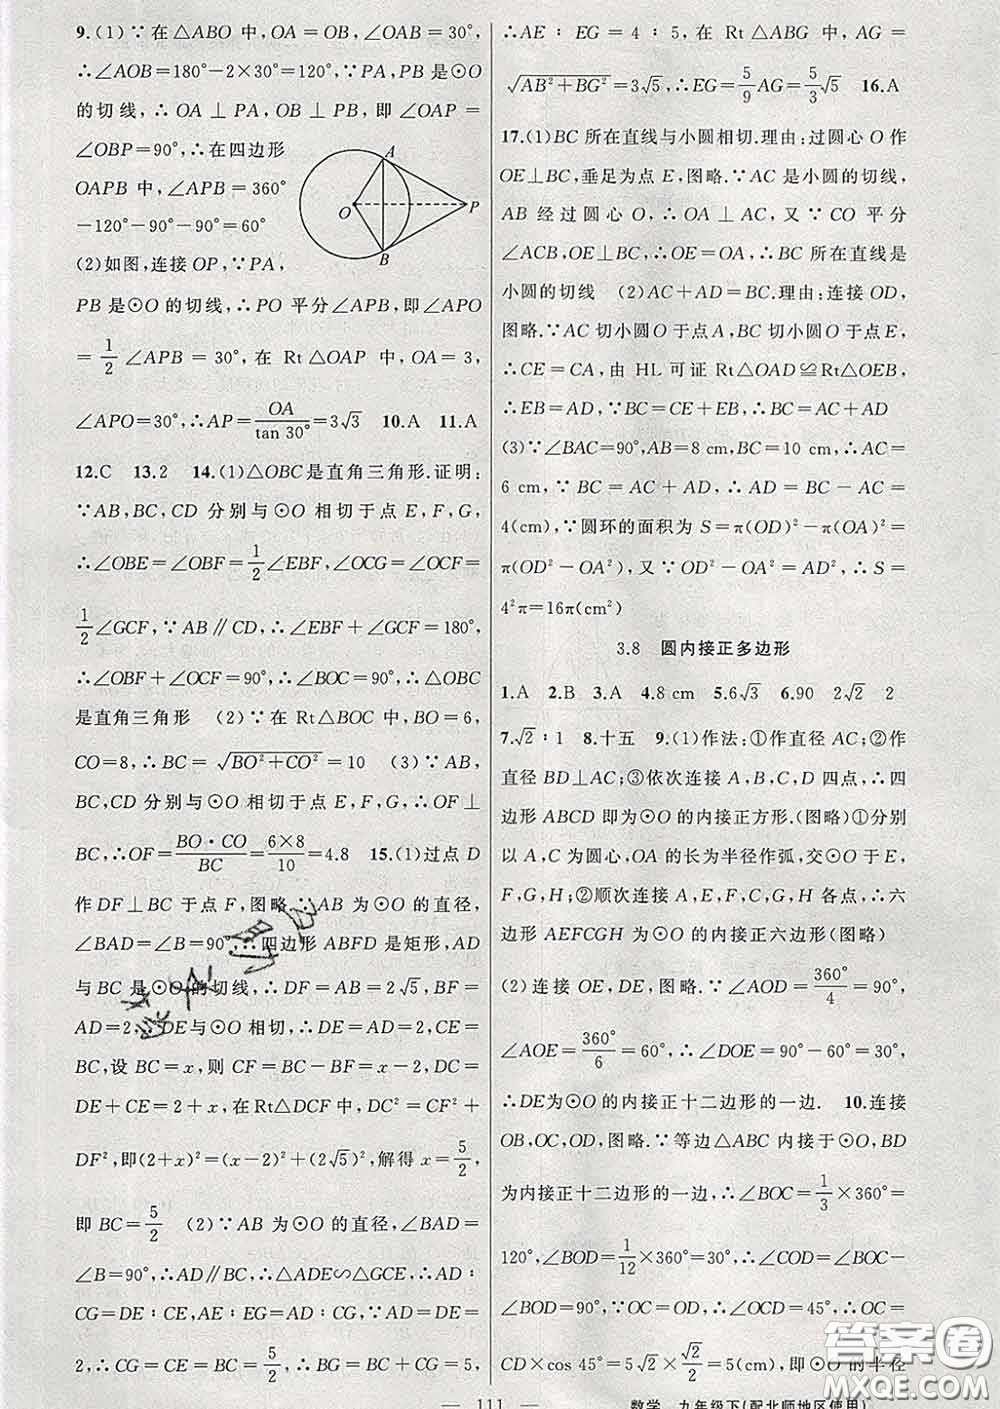 9.(1)∵在△ABO中,OA=OB,∠OAB=30°,
∴∠AOB=180°-2×30°=120°,∵PA,PB是⊙O
的切线,∴OA⊥PA,OB⊥PB,即∠OAP=
∠OBP=90°,∴在四边形
OAPB中,∠APB=360°
-120°-90°-90°=60°
(2)如图,连接OP,∵PA,
A
O
P
B
PB是⊙O的切线,∴PO平分∠APB,即∠APO
=1/2∠APB=30°,在Rt△OAP中,OA=3,
∠APO=30°,∴AP=OA/tan 30°=3√3 10.A 11.A
12.C 13.2 14.(1)△OBC是直角三角形.证明:
∵AB,BC,CD分别与⊙O相切于点E,F,G,
∴∠OBE=∠OBF=1/2∠EBF,∠OCG=∠OCF=
1/2∠GCF,∵AB∥CD,∴∠EBF+∠GCF=180°,
∴∠OBF+∠OCF=90°,∴∠BOC=90°,∴△OBC
是直角三角形 (2)∵在Rt△BOC中,BO=6,
CO=8,∴BC=√(BO²+CO²)=10 (3)∵AB,
BC,CD分别与⊙O相切于点E,F,G,∴OF⊥
BC,∴OF=BO·CO/BC=6×8/10=4.8 15.(1)过点D
作DF⊥BC于点F,图略.∵AB为⊙O的直径,
∠BAD=∠B=90°,∴四边形ABFD是矩形,AD
与BC是⊙O的切线,∴DF=AB=2√5,BF=
AD=2,∵DE与⊙O相切,∴DE=AD=2,CE=
BC,设BC=x,则CF=BC-BF=x-2,DC=
DE+CE=2+x,在Rt△DCF中,DC²=CF²+
DF²,即(2+x)²=(x-2)²+(2√5)²,解得x=5/2,
即BC=5/2 (2)∵AB为⊙O的直径,∠BAD=
∠B=90°,∴AD∥BC,∴△ADE∽△GCE,∴AD∶
CG=DE∶CE,AE∶EG=AD∶CG,∵AD=DE=
2,∴CG=CE=BC=5/2,∴BG=BC+CG=5,
∴AE∶EG=4∶5,在Rt△ABG中,AG=
√(AB²+BG²)=3√5,∴EG=5/9AG=5/3√5 16.A
17.(1)BC所在直线与小圆相切.理由:过圆心O作
OE⊥BC,垂足为点E,图略.∵AC是小圆的切线,
AB经过圆心O,∴OA⊥AC,又∵CO平分
∠ACB,OE⊥BC,∴OE=OA,∴BC所在直线是
小圆的切线 (2)AC+AD=BC.理由:连接OD,
图略.∵AC切小圆O于点A,BC切小圆O于点E,
∴CE=CA,由HL可证Rt△OAD≌Rt△OEB,
∴EB=AD,∵BC=CE+EB,∴BC=AC+AD
(3)∵∠BAC=90°,AB=8 cm,BC=10 cm,∴AC=
6 cm,∵BC=AC+AD,∴AD=BC-AC=
4(cm),∵圆环的面积为S=π(OD)²-π(OA)²=
π(OD²-OA²),又∵OD²-OA²=AD²,∴S=
4²π=16π(cm²)
3.8 圆内接正多边形
1.A 2.B 3.A 4.8 cm 5.6√3 6.90 2√2 2
7.√2∶1 8.十五 9.(1)作法:①作直径AC;②作
直径BD⊥AC;③依次连接A,B,C,D四点,∴四
边形ABCD即为⊙O的内接正方形.(图略)①分别
以A,C为圆心,OA的长为半径作弧,交⊙O于E,
F,G,H;②顺次连接A,E,F,C,G,H各点,∴六
边形AEFCGH为⊙O的内接正六边形(图略)
(2)连接OE,DE,图略.∵∠AOD=360°/4=90°,
∠AOE=360°/6=60°,∴∠DOE=90°-60°=30°,
∴DE为⊙O的内接正十二边形的一边. 10.连接
OB,OC,OD,图略.∵等边△ABC内接于⊙O,BD
为内接正十二边形的一边,∴∠BOC=1/3×360°=
120°,∠BOD=1/12×360°=30°,∴∠COD=∠BOC-
∠BOD=90°,∵OC=OD,∴∠OCD=45°,∴OC=
CD×cos 45°=5√2×√2/2=5(cm),即⊙O的半径
— 111 —
数学 九年级下(配北师地区使用)
答案圈
MXQE.COM